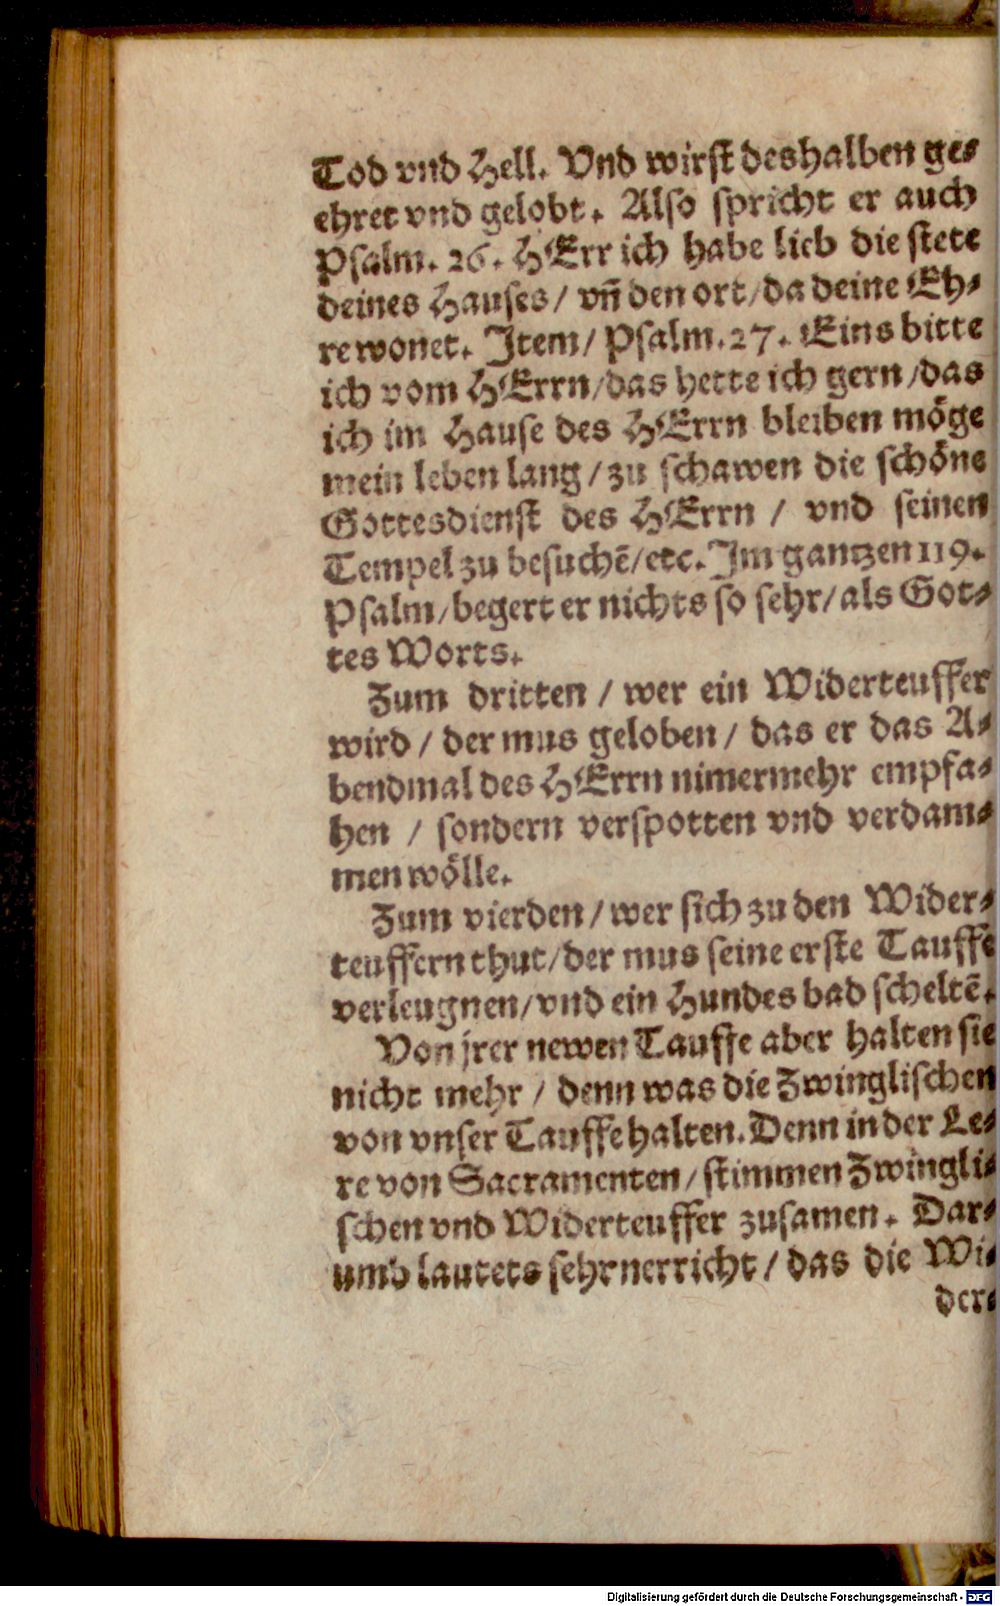 Tod vnd Hell. Vnd wirst deshalben ge⸗
ehret vnd gelobt. Also spricht er auch
Psalm. 26. HErr ich habe lieb die stete
deines Hauses / vñ den ort / da deine Eh⸗
re wonet. Item / Psalm. 27. Eins bitte
ich vom HErrn / das hette ich gern / das
ich im Hause des HErrn bleiben möge
mein leben lang / zu schawen die schöne
Gottesdienst des HErrn / vnd seinen
Tempel zu besuchẽ / etc. Im gantzen 119.
Psalm / begert er nichts so sehr / als Got⸗
tes Worts.
Zum dritten / wer ein Widerteuffer
wird / der mus geloben / das er das A⸗
bendmal des HErrn nimermehr empfa⸗
hen / sondern verspotten vnd verdam⸗
men wölle.
Zum vierden / wer sich zu den Wider⸗
teuffern thut / der mus seine erste Tauffe
verleugnen / vnd ein Hundes bad scheltẽ.
Von jrer newen Tauffe aber halten sie
nicht mehr / denn was die Zwinglischen
von vnser Tauffe halten. Denn in der Le⸗
re von Sacramenten / stimmen Zwingli⸗
schen vnd Widerteuffer zusamen. Dar⸗
umb lautets sehr nerricht / das die Wi⸗
der⸗
Digitalisierung gefördert durch die Deutsche Forschungsgemeinschaft - DFG